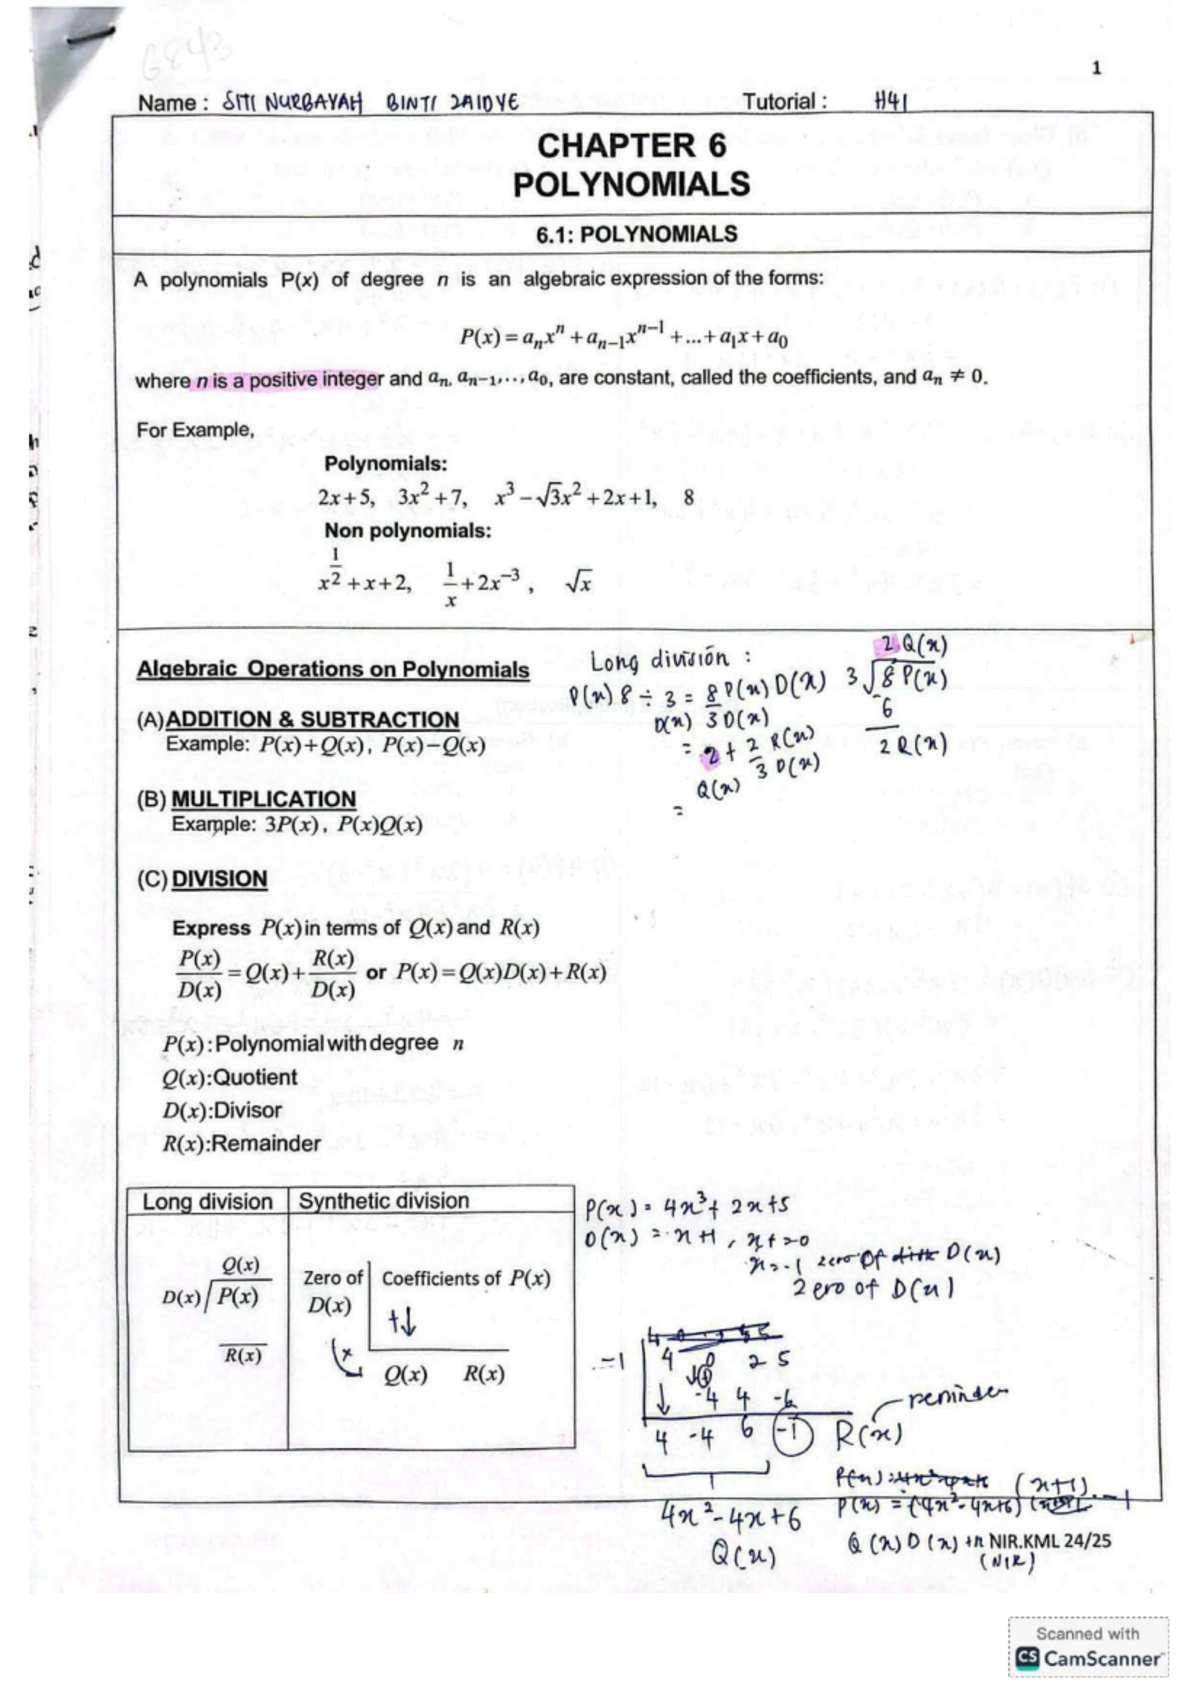 G843
1
Name : SITI NURBAYAH BINTI ZAIDYE Tutorial : H41
CHAPTER 6
POLYNOMIALS
6.1: POLYNOMIALS
A polynomials P(x) of degree n is an algebraic expression of the forms:
P(x) = aₙxⁿ + aₙ₋₁xⁿ⁻¹ + ... + a₁x + a₀
where n is a positive integer and aₙ, aₙ₋₁,..,a₀, are constant, called the coefficients, and aₙ ≠ 0.
For Example,
Polynomials:
2x+5, 3x²+7, x³−√3x²+2x+1, 8
Non polynomials:
x^(1/2)+x+2, 1/x+2x⁻³, √x
Algebraic Operations on Polynomials
(A)ADDITION & SUBTRACTION
Example: P(x)+Q(x), P(x)−Q(x)
(B) MULTIPLICATION
Example: 3P(x), P(x)Q(x)
(C) DIVISION
Express P(x) in terms of Q(x) and R(x)
P(x)/D(x) = Q(x)+R(x)/D(x) or P(x)=Q(x)D(x)+R(x)
P(x):Polynomial with degree n
Q(x):Quotient
D(x):Divisor
R(x):Remainder
Long division :
P(x) 8 ÷ 3 = 8 P(x) D(x)
D(x) 3 D(x)
= 2 + 2 R(x)
3 D(x)
Q(x)
=
2 Q(x)
3 √8 P(x)
-6
2 R(x)
Long division Synthetic division
Q(x)
D(x) P(x)
R(x)
Zero of D(x) Coefficients of P(x)
+↓
x
Q(x) R(x)
P(x) = 4x³+ 2x+5
D(x) = x+1, x+ =0
x=-1 zero of D(x)
zero of D(x)
-1 4 0 2 5
↓ -4 4 -6
4 -4 6 -1 R(x)
reminder
4x²-4x+6
Q(x)
(x+1)
P(x) = (4x²-4x+6) -1
Q(x)D(x)+R NIR.KML 24/25
(NIR)
Scanned with
CS CamScanner